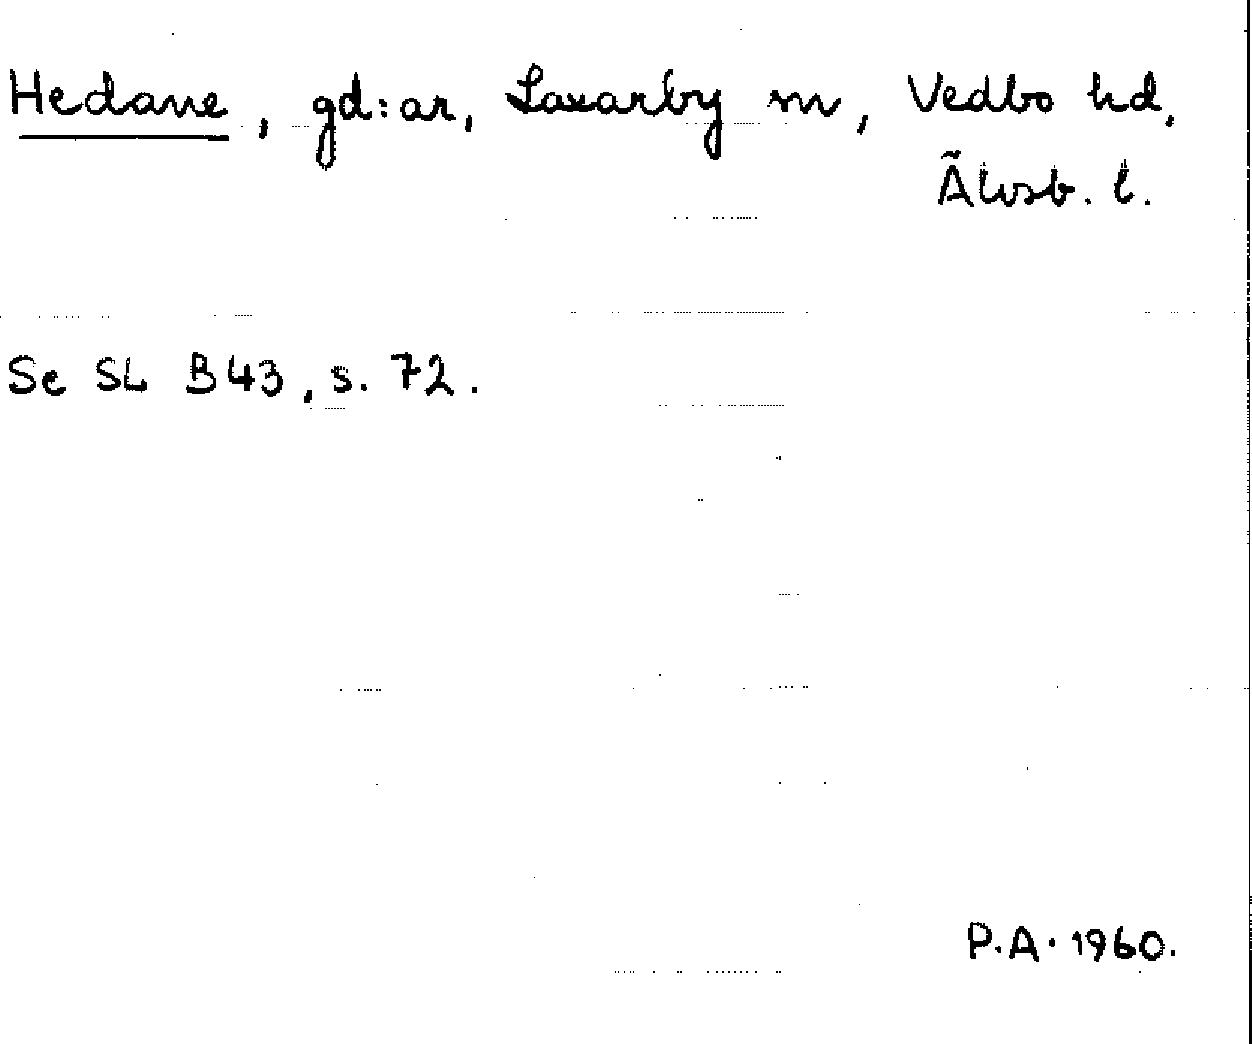 Hedane, gd:ar, Laxarby sn, Vedbo hd,
Älvsb. l.
Se SL B43, s. 72.
P.A. 1960.